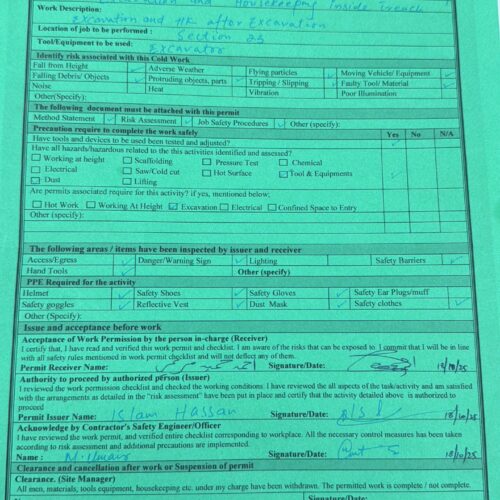 Excavation and Housekeeping inside trench
Work Description:
Excavation and HK after Excavation
Location of job to be performed :
Section 25
Tool/Equipment to be used:
Excavator
Identify risk associated with this Cold Work
Fall from Height ✓ Adverse Weather Flying particles Moving Vehicle/ Equipment ✓
Falling Debris/ Objects Protruding objects, parts ✓ Tripping / Slipping ✓ Faulty Tool/ Material ✓
Noise Heat Vibration Poor Illumination
Other(Specify):
The following document must be attached with this permit
Method Statement ✓ Risk Assessment ✓ Job Safety Procedures ✓ Other (specify):
Precaution require to complete the work safely Yes No N/A
Have tools and devices to be used been tested and adjusted? ✓
Have all hazards/hazardous related to the this activities identified and assessed?
☐ Working at height ☐ Scaffolding ☐ Pressure Test ☐ Chemical
☐ Electrical ☐ Saw/Cold cut ☐ Hot Surface ☑ Tool & Equipments ✓
☐ Dust ☐ Lifting
Are permits associated require for this activity? if yes, mentioned below;
☐ Hot Work ☐ Working At Height ☑ Excavation ☐ Electrical ☐ Confined Space to Entry
Other (specify):
The following areas / items have been inspected by issuer and receiver
Access/Egress ✓ Danger/Warning Sign ✓ Lighting Safety Barriers ✓
Hand Tools ✓ Other (specify)
PPE Required for the activity
Helmet ✓ Safety Shoes ✓ Safety Gloves ✓ Safety Ear Plugs/muff
Safety goggles ✓ Reflective Vest ✓ Dust Mask ✓ Safety clothes ✓
Other (Specify):
Issue and acceptance before work
Acceptance of Work Permission by the person in-charge (Receiver)
I certify that, I have read and verified this work permit and checklist. I am aware of the risks that can be exposed to. I commit that I will be in line
with all safety rules mentioned in work permit checklist and will not deflect any of them.
Permit Receiver Name: Signature/Date: 18/10/25
Authority to proceed by authorized person (Issuer)
I reviewed the work permission and checked the working conditions. I have reviewed the all aspects of the task/activity and am satisfied
with the arrangements as detailed in the "risk assessment" have been put in place and certify that the activity detailed above is authorized to
proceed
Permit Issuer Name: Islam Hassan Signature/Date: 18/10/25
Acknowledge by Contractor's Safety Engineer/Officer
I have reviewed the work permit, and verified entire checklist corresponding to workplace. All the necessary control measures has been taken
according to risk assessment and additional precautions are implemented.
Name : Signature/Date: 18/10/25
Clearance and cancellation after work or Suspension of permit
Clearance. (Site Manager)
All men, materials, tools equipment, housekeeping etc. under my charge have been withdrawn. The permitted work is complete / not complete.